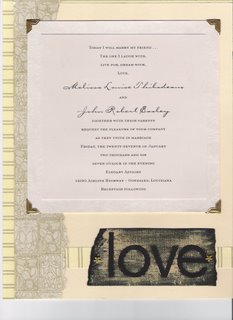 Today I will marry my friend . . .
The one I laugh with,
live for, dream with,
Love.
Melissa Louise Thibodeaux
and
John Robert Easley
together with their parents
request the pleasure of your company
as they unite in marriage
Friday, the twenty-seventh of January
two thousand and six
seven o'clock in the evening
Elegant Affairs
Airline Highway - Gonzales, Louisiana
Reception following
love